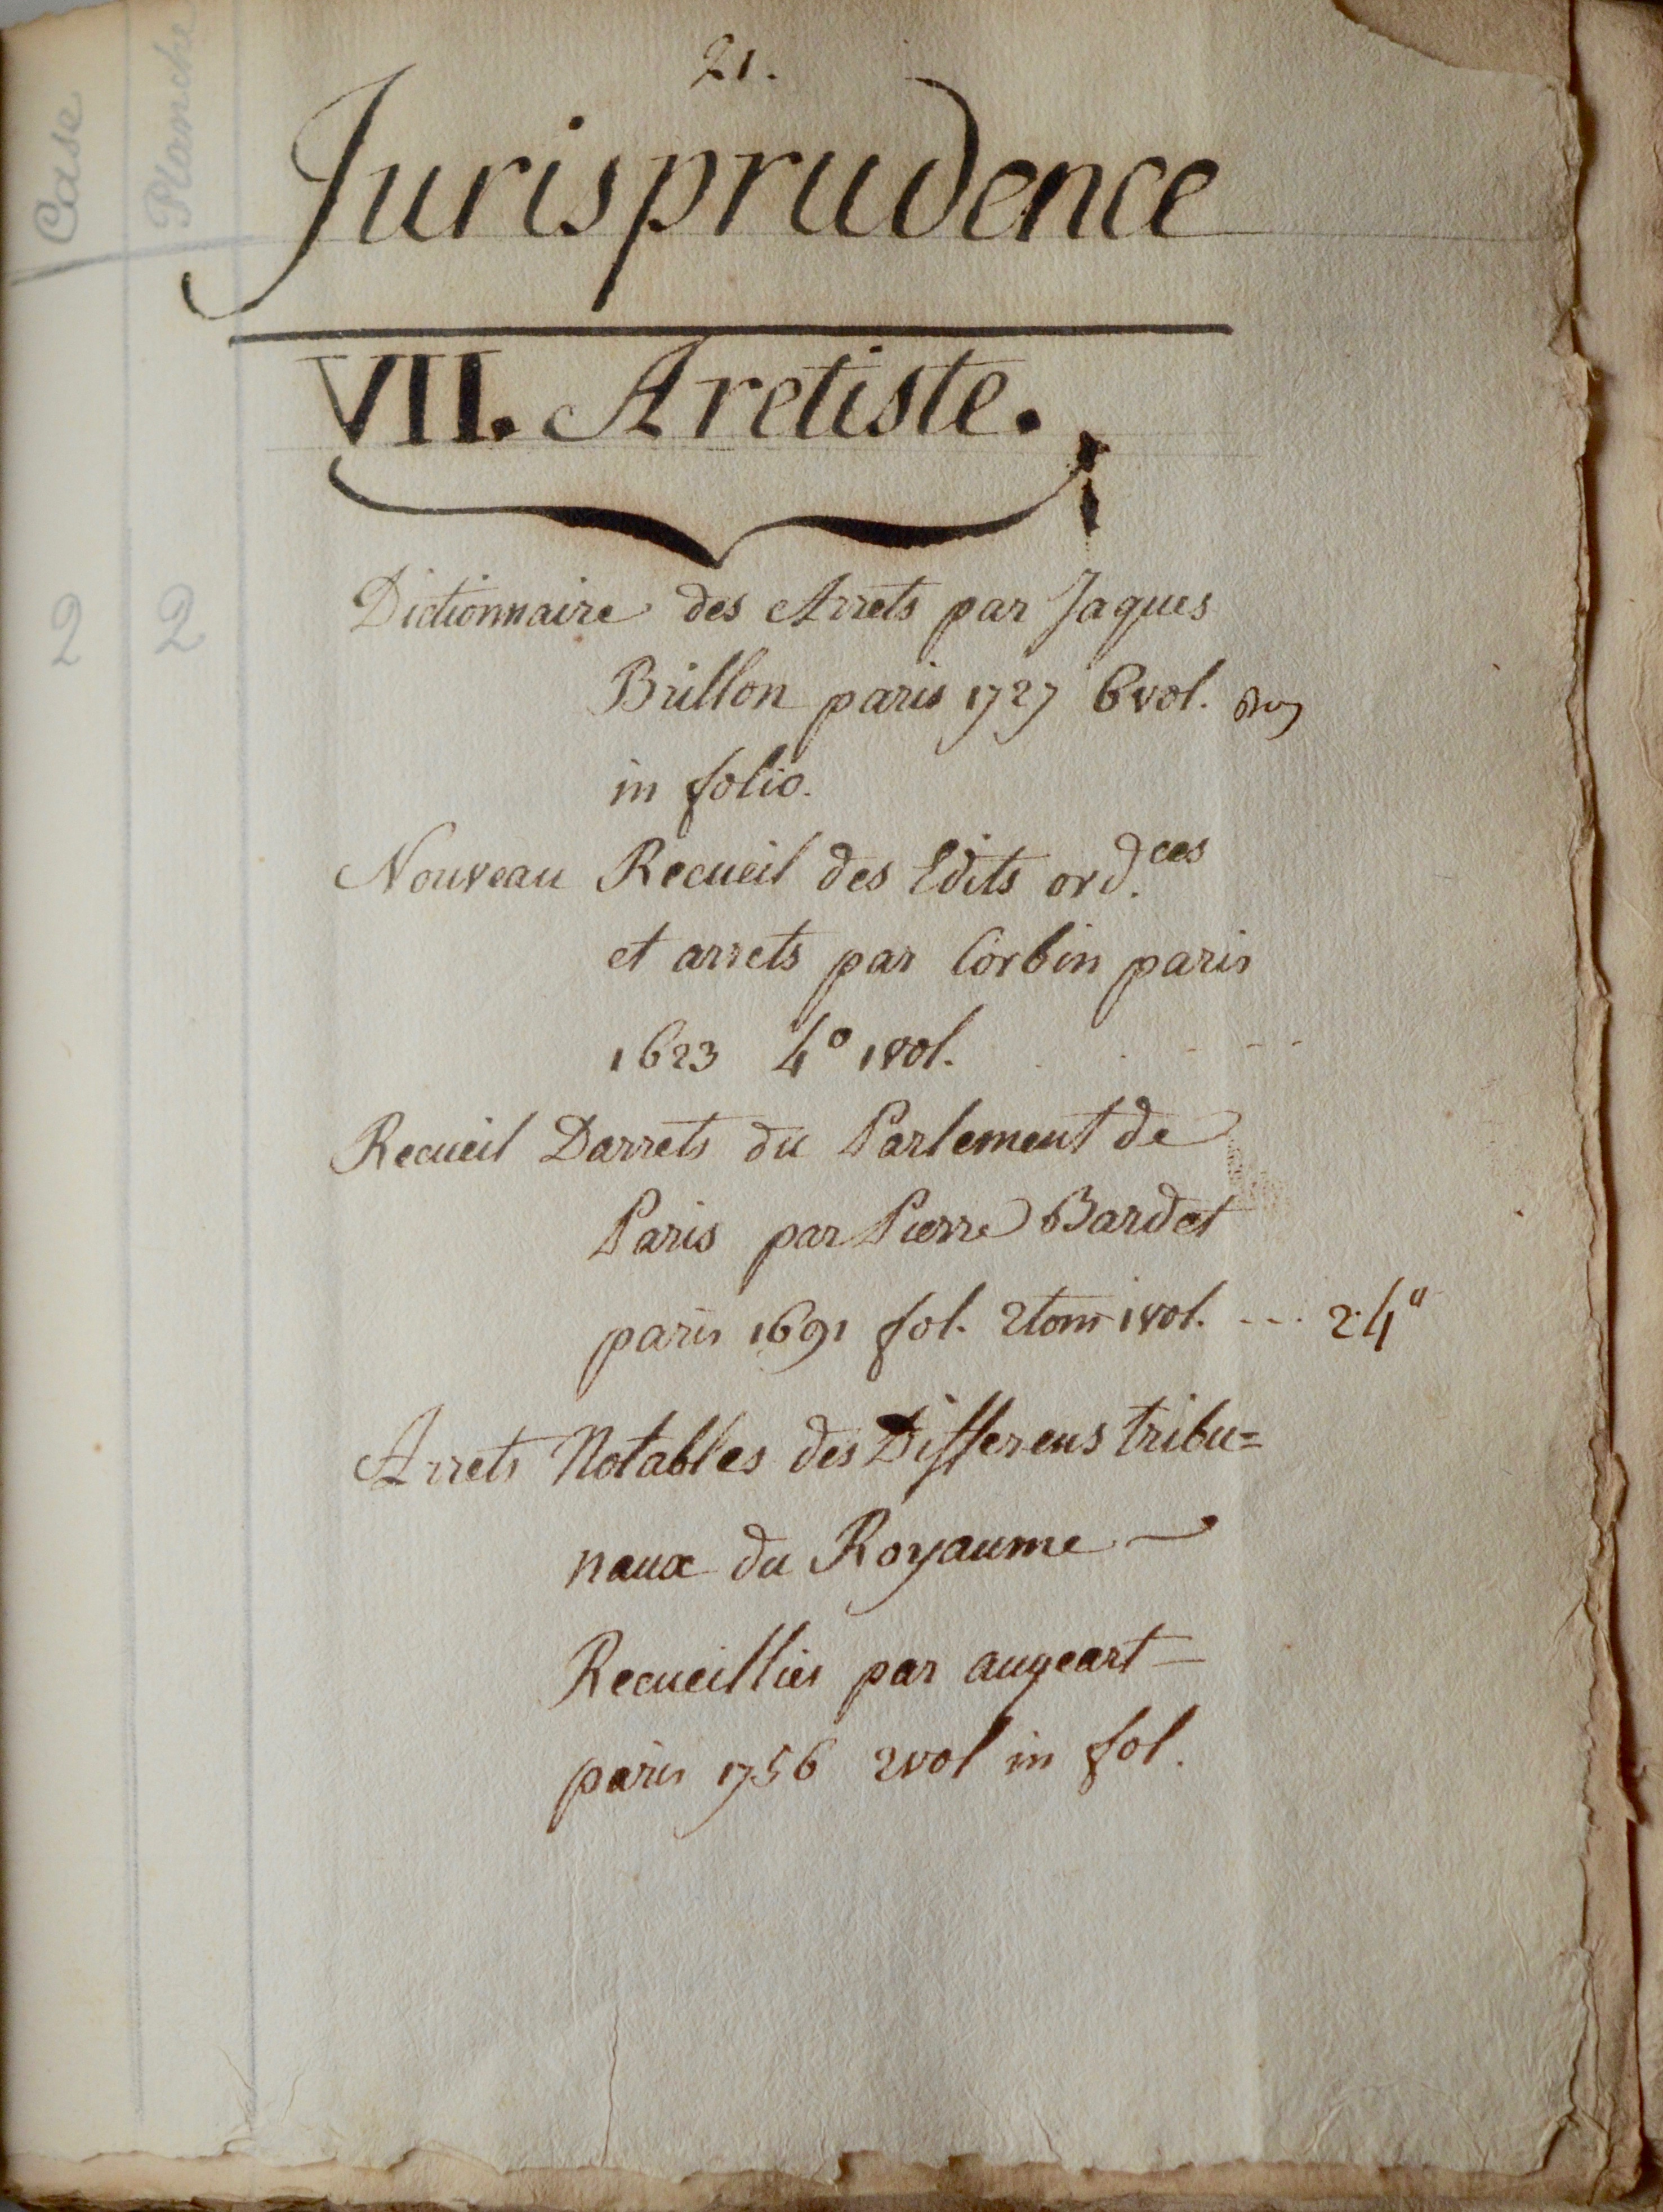 21.
Case
Planche
Jurisprudence
VII. Aretiste.
2 2
Dictionnaire des Arrets par Jaques
Brillon paris 1727 6 vol.
in folio.
Nouveau Recueil des Edits ord.ces
et arrets par Corbin paris
1623 4° 1 vol.
Recueil Darrets du Parlement de
Paris par Pierre Bardet
paris 1691 fol. 2 tom 1 vol. --- 2.4°
Arrets Notables des Differens tribu=
naux du Royaume
Recueillies par augeart
paris 1756 2 vol in fol.